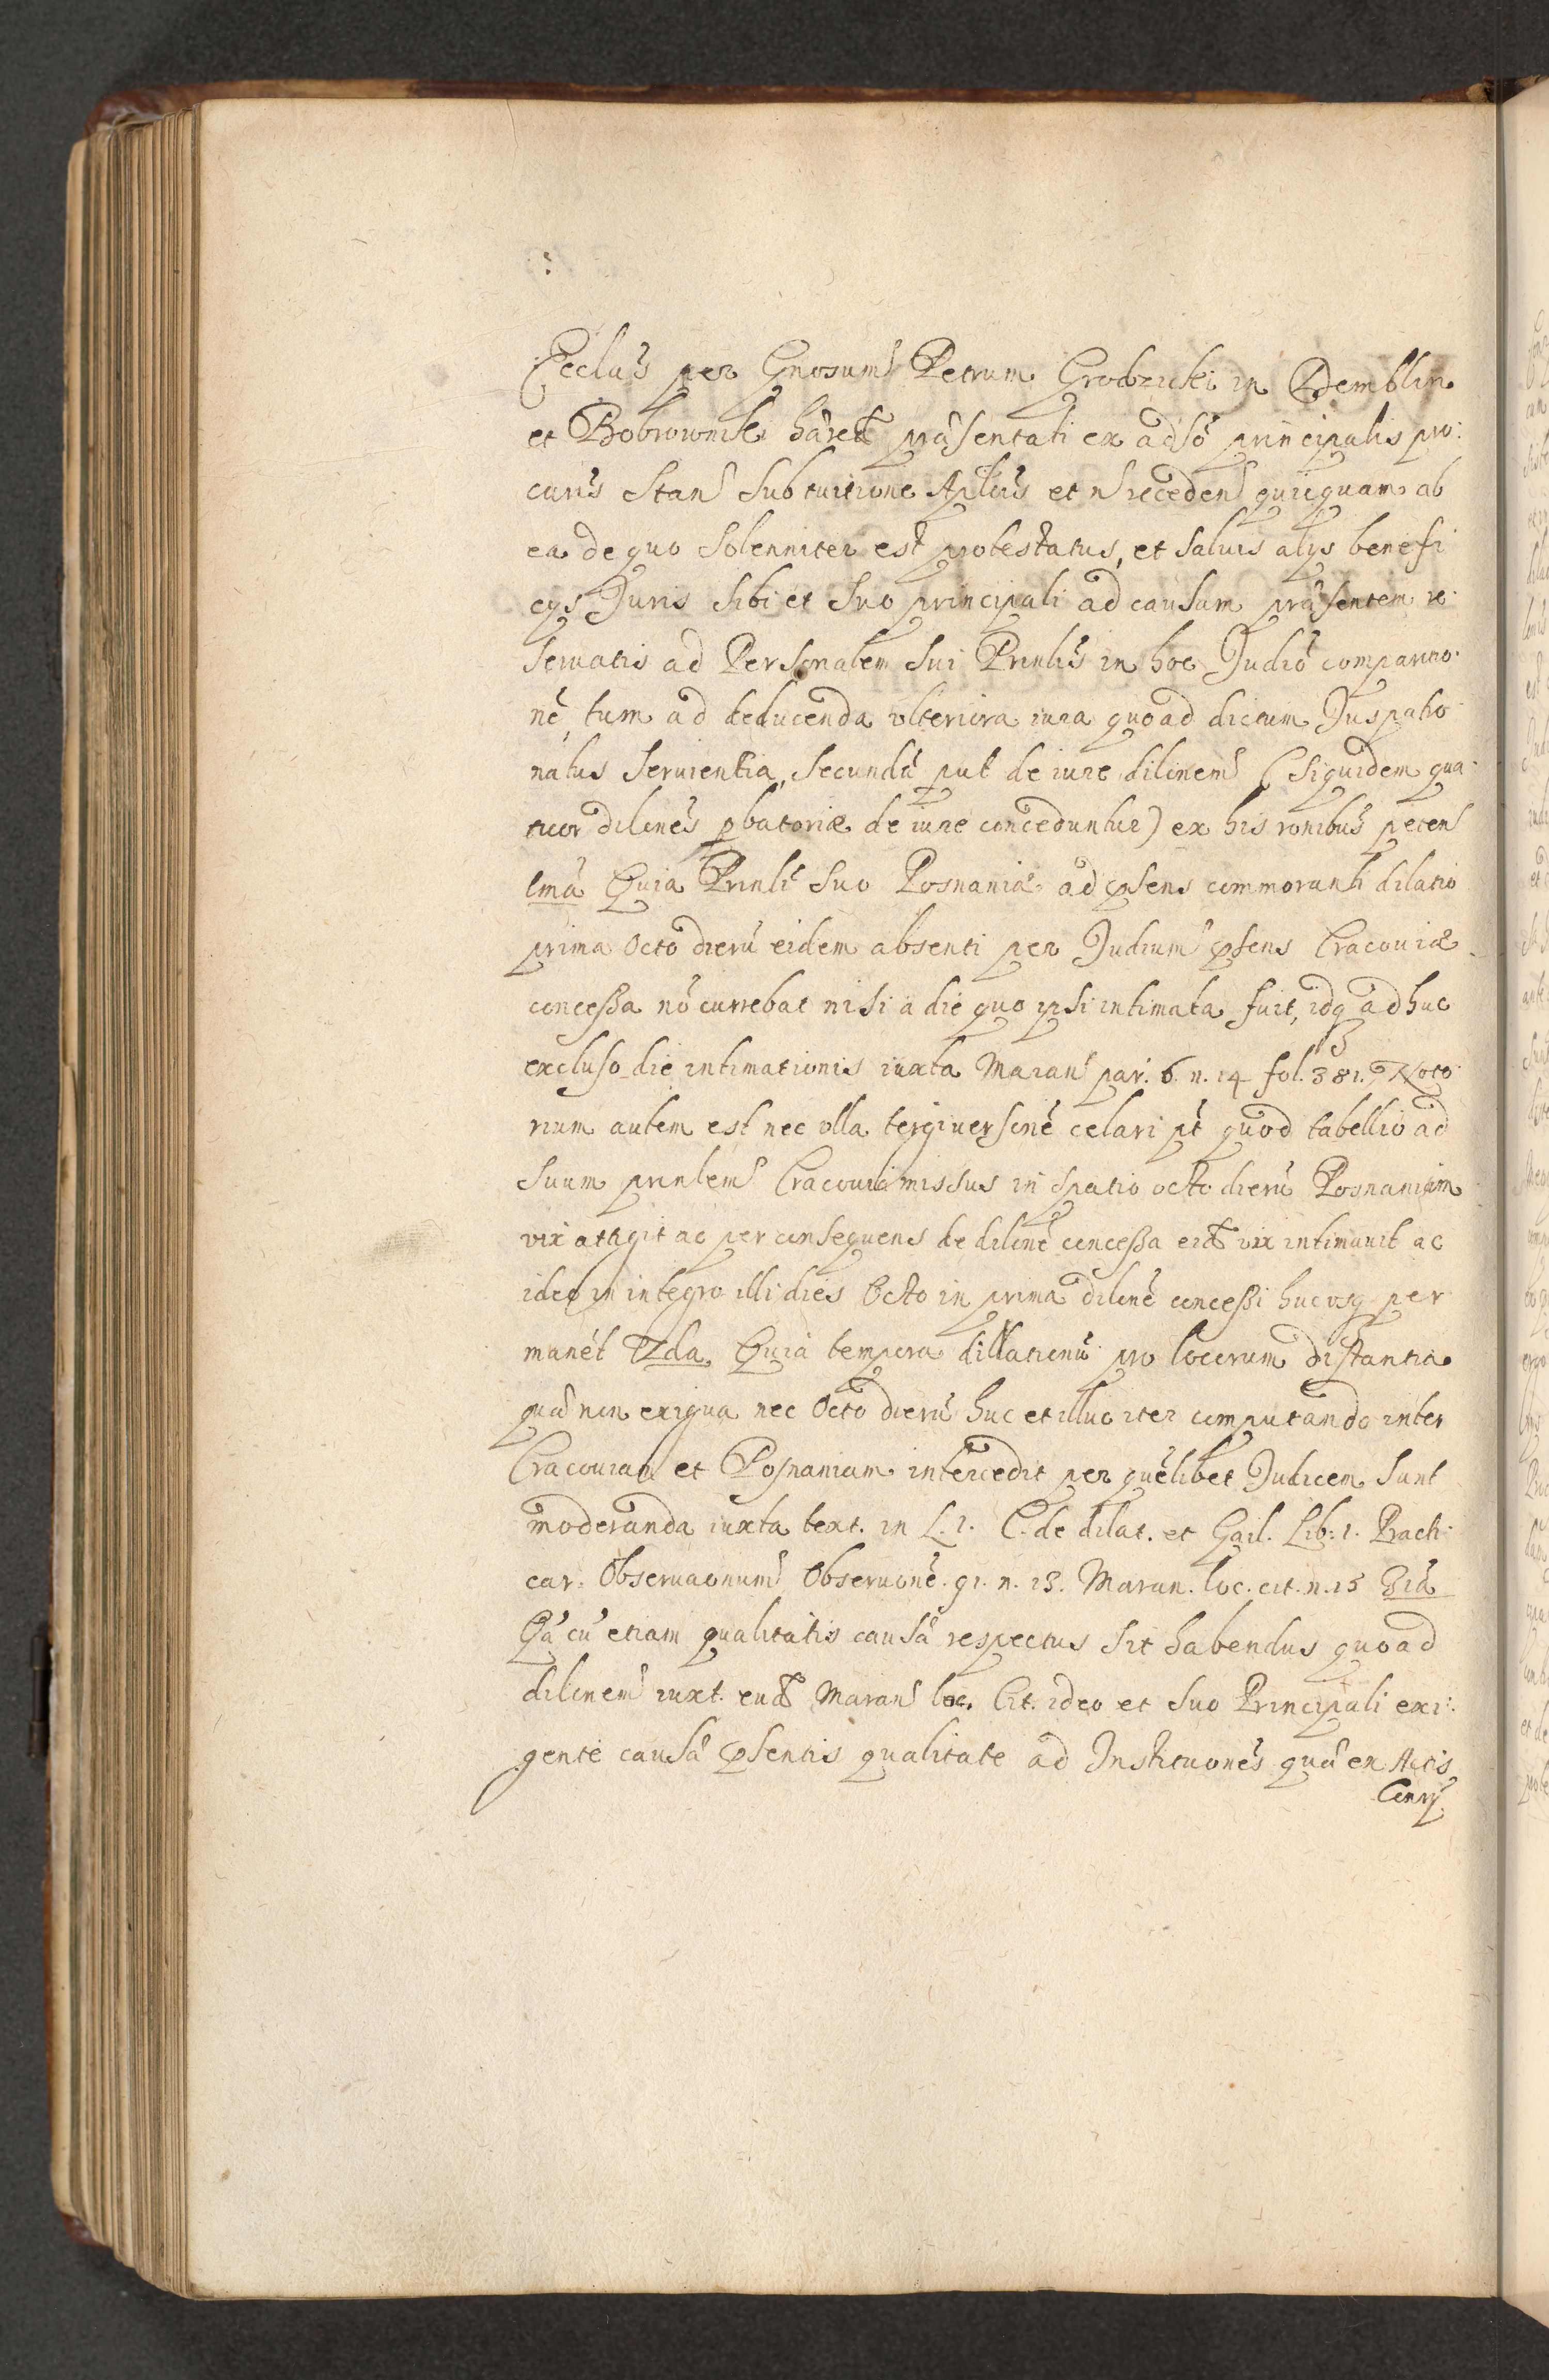 Ecclīs per Gnosum Petrum Grodzicki in Demblin
et Bobrowniki hæred præsentati ex adsō principalis pro:
curīs stan sub tuitione Aplcīs et n̄ receden quicquam ab
ea de quo solenniter est protestatus, et saluis alys benefi
cys Juris sibi et suo principali ad causam præsentem re:
seruatis ad Personalem sui Prinlīs in hoc Judiō comparitio:
nē, tum ad deducenda vlteriora iura quoad dictum Juspatro
natus seruientia, secundā put de iure dilcnem (siquidem qua:
tuor dilcnēs pbatoriæ de iure conceduntur) ex his ronibus peten
1mā Quia Prinlī suo Posnaniæ ad psens commoranti dilatio
prima octo dierū eidem absenti per Judium psens Cracouiæ
concessa nō currebat nisi a die quo ipsi intimata fuit, idq adhuc
excluso die intimationis iuxta Maran par. 6. n. 14 fol. 381. Noto:
rium autem est nec vlla tergiuersonē celari pt quod tabellio ad
suum prinlem Cracouia missus in spatio octo dierū Posnaniam
vix attigit ac per consequens de dilcnē concessa eid vix intimauit ac
ideo in integro illi dies octo in prima dilcnē concessi hucusq per
manēt 2da. Quia tempora dillationū pro locorum distantia
quæ non exigua nec octo dierū huc et illuc iter computando inter
Cracouian et Posnaniam intercedit per quēlibet Judicem sunt
moderanda iuxta text. in L. 1. C. de dilat. et Gail. Lib: 1. Practi:
car. Obseruaonum Obseruonē. 91. n. 13. Maran. loc. cit. n. 15 3iā
Qā cū etiam qualitatis causæ respectus sit habendus quoad
dilcnem iuxt. eud Maran loc. cit. ideo et suo Principali exi:
gente causæ psentis qualitate ad Institutionēs quæ ex Actis
Consy